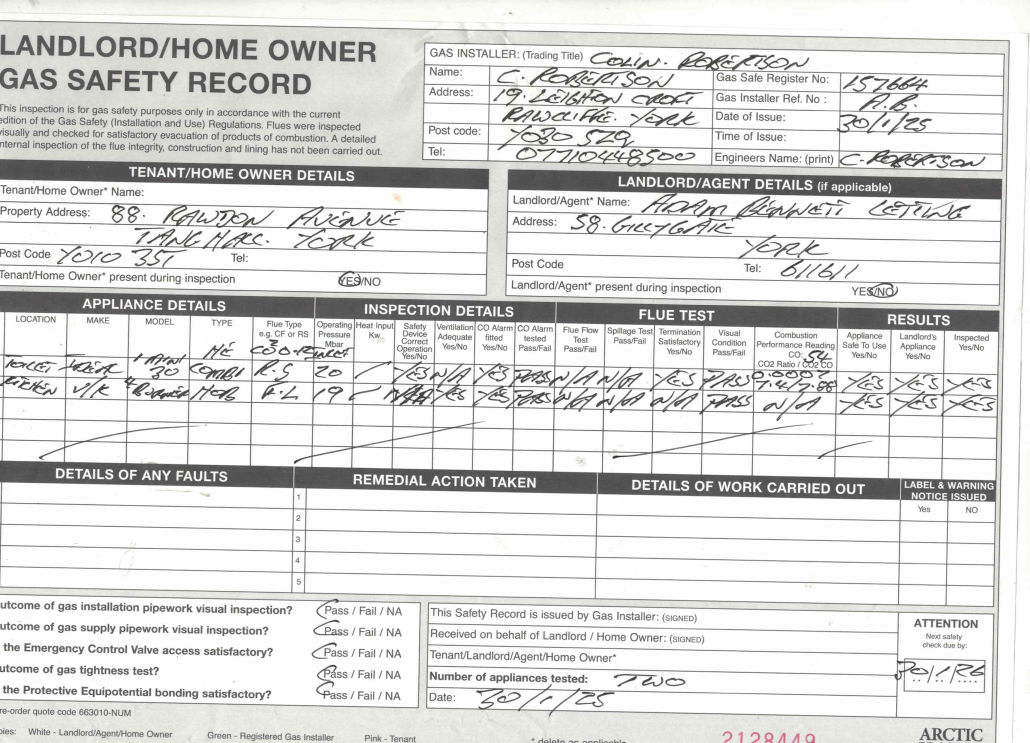 LANDLORD/HOME OWNER
GAS SAFETY RECORD
This inspection is for gas safety purposes only in accordance with the current
edition of the Gas Safety (Installation and Use) Regulations. Flues were inspected
visually and checked for satisfactory evacuation of products of combustion. A detailed
internal inspection of the flue integrity, construction and lining has not been carried out.
GAS INSTALLER: (Trading Title) COLIN. ROBERTSON
Name: C. ROBERTSON
Address: 19. LEIGHTON CROFT
RAWCLIFFE. YORK
Post code: YO30 5
Tel: 07710448500
Gas Safe Register No: 157664
Gas Installer Ref. No :
Date of Issue: 30/1/25
Time of Issue:
Engineers Name: (print) C. ROBERTSON
TENANT/HOME OWNER DETAILS
Tenant/Home Owner* Name:
Property Address: 88. AVENUE
TANG HALL. YORK
Post Code YO10 3 Tel:
Tenant/Home Owner* present during inspection YES/NO
LANDLORD/AGENT DETAILS (if applicable)
Landlord/Agent* Name: ADAM BENNETT LETTING
Address: 58. GILLYGATE
YORK
Post Code Tel: 611611
Landlord/Agent* present during inspection YES/NO
APPLIANCE DETAILS INSPECTION DETAILS FLUE TEST RESULTS
LOCATION MAKE MODEL TYPE Flue Type e.g. CF or RS Operating Pressure Mbar Heat Input Kw Safety Device Correct Operation Yes/No Ventilation Adequate Yes/No CO Alarm fitted Yes/No CO Alarm tested Pass/Fail Flue Flow Test Pass/Fail Spillage Test Pass/Fail Termination Satisfactory Yes/No Visual Condition Pass/Fail Combustion Performance Reading CO: 54 CO2 Ratio / CO2 CO Appliance Safe To Use Yes/No Landlord's Appliance Yes/No Inspected Yes/No
TOILET 30 HE COMBI 20 YES N/A YES PASS N/A N/A YES PASS 0.0007 7.4/7.88 YES YES YES
KITCHEN U/K 4 BURNER HOB F.L 19 YES YES PASS N/A N/A N/A PASS N/A YES YES YES
DETAILS OF ANY FAULTS REMEDIAL ACTION TAKEN DETAILS OF WORK CARRIED OUT LABEL & WARNING NOTICE ISSUED
Yes NO
1
2
3
4
5
utcome of gas installation pipework visual inspection? Pass / Fail / NA
utcome of gas supply pipework visual inspection? Pass / Fail / NA
the Emergency Control Valve access satisfactory? Pass / Fail / NA
utcome of gas tightness test? Pass / Fail / NA
the Protective Equipotential bonding satisfactory? Pass / Fail / NA
This Safety Record is issued by Gas Installer: (SIGNED)
Received on behalf of Landlord / Home Owner: (SIGNED)
Tenant/Landlord/Agent/Home Owner*
Number of appliances tested: TWO
Date: 30/1/25
ATTENTION
Next safety
check due by:
30/1/26
re-order quote code 663010-NUM
pies: White - Landlord/Agent/Home Owner Green - Registered Gas Installer Pink - Tenant
* delete as applicable
2128449
ARCTIC